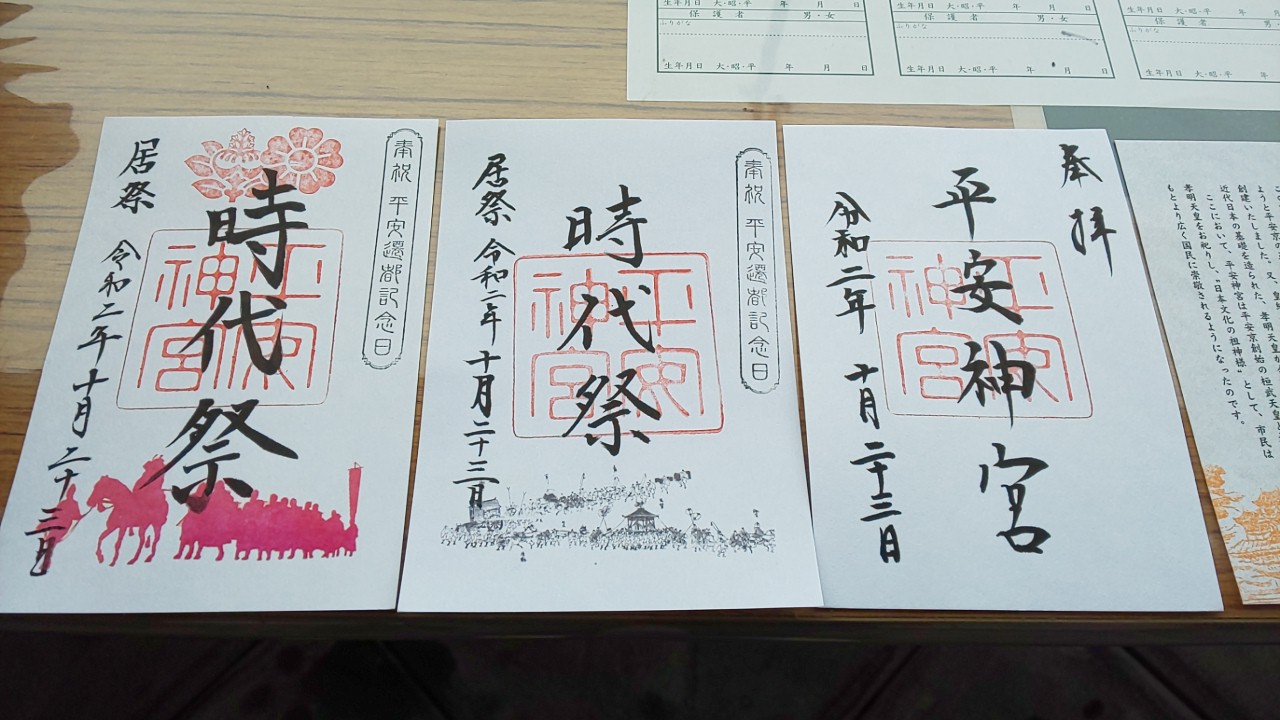 奉祝 平安遷都記念日
時代祭
平安神宮
居祭 令和二年 十月 二十三日
奉祝 平安遷都記念日
時代祭
平安神宮
居祭 令和二年 十月 二十三日
奉拝
平安神宮
平安神宮
令和二年 十月 二十三日
生年月日 大・昭・平 年 月 日
保護者 男・女
ふりがな
生年月日 大・昭・平 年 月 日
生年月日 大・昭・平 年 月 日
保護者 男・女
ふりがな
生年月日 大・昭・平 年 月 日
生年月日 大・昭・平 年 月
保護者 男・女
ふりがな
生年月日 大・昭・平 年 月 日
創建いたしました。又、
近代日本の基礎を造られた、孝明天皇
ここにおいて、平安神宮は平安京創始の桓武天皇
孝明天皇をお祀りし、"日本文化の祖神様"として、市民は
もとより広く国民に崇敬されるようになったのです。